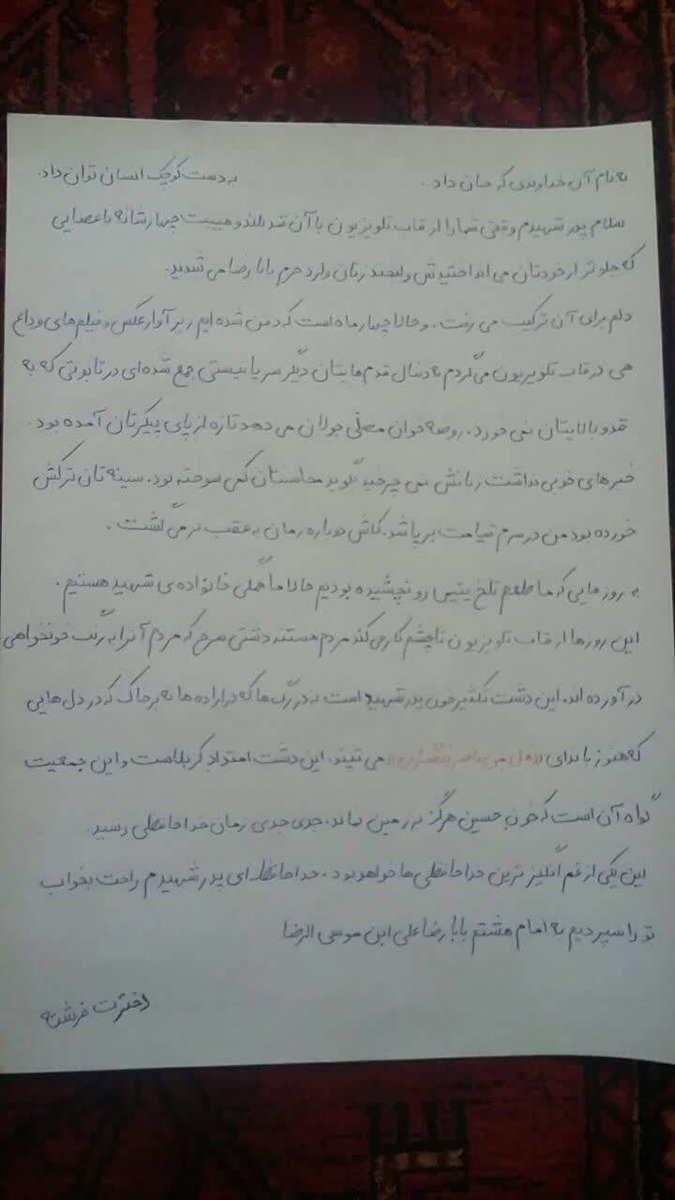 به نام آن خداوندی که جان داد. به دست کوچک انسان توان داد.
سلام پدر شهیدم وقتی شما را از قاب تلویزیون با آن قد بلند و هیبت چهارشانه با عصایی
که جلوتر از خودتان می آمد لبخند زنان وارد حرم بابا رضا می شدید.
دلم برای آن ترکیب می رفت. و حالا چهار ماه است که دفن شده ایم زیر آوار عکس و فیلم های وداع
هی در قاب تلویزیون می گردم به دنبال قدم هایتان دیگر سرپا نیستی جمع شده ای در تابوتی که به
قد و بالایتان نمی خورد. روضه خوان مصلّی جولان می دهد تازه از پای پیکرتان آمده بود.
خبرهای خوبی نداشت زبانش نمی چرخید بگوید محاسنتان کمی سوخته بود. سینه تان ترکش
خورده بود من در سرم قیامت برپا شد. کاش دوباره زمان به عقب بر می گشت.
به روزهایی که ما طعم تلخ یتیمی رو نچشیده بودیم حالا ما همگی خانواده ی شهید هستیم.
این روزها از قاب تلویزیون تا چشم کار می کند مردم هستند دشتی سرخ که مردم آنرا به رنگ خونخواهی
در آورده اند. این دشت تکثیر خون پدر شهید است نه در رگ ها که در اراده ها نه بر خاک که در دل هایی
که هنوز با ندای «هل من ناصر ینصرنی» می تپند. این دشت امتداد کربلاست و این جمعیت
گواه آن است که خون حسین هرگز به زمین نماند. جدی جدی زمان خداحافظی رسید.
این یکی از غم انگیز ترین خداحافظی ها خواهد بود. خداحافظ ای پدر شهیدم راحت بخواب
تو را سپردیم به امام هشتم بابا رضا علی ابن موسی الرضا
دخترت فرشته